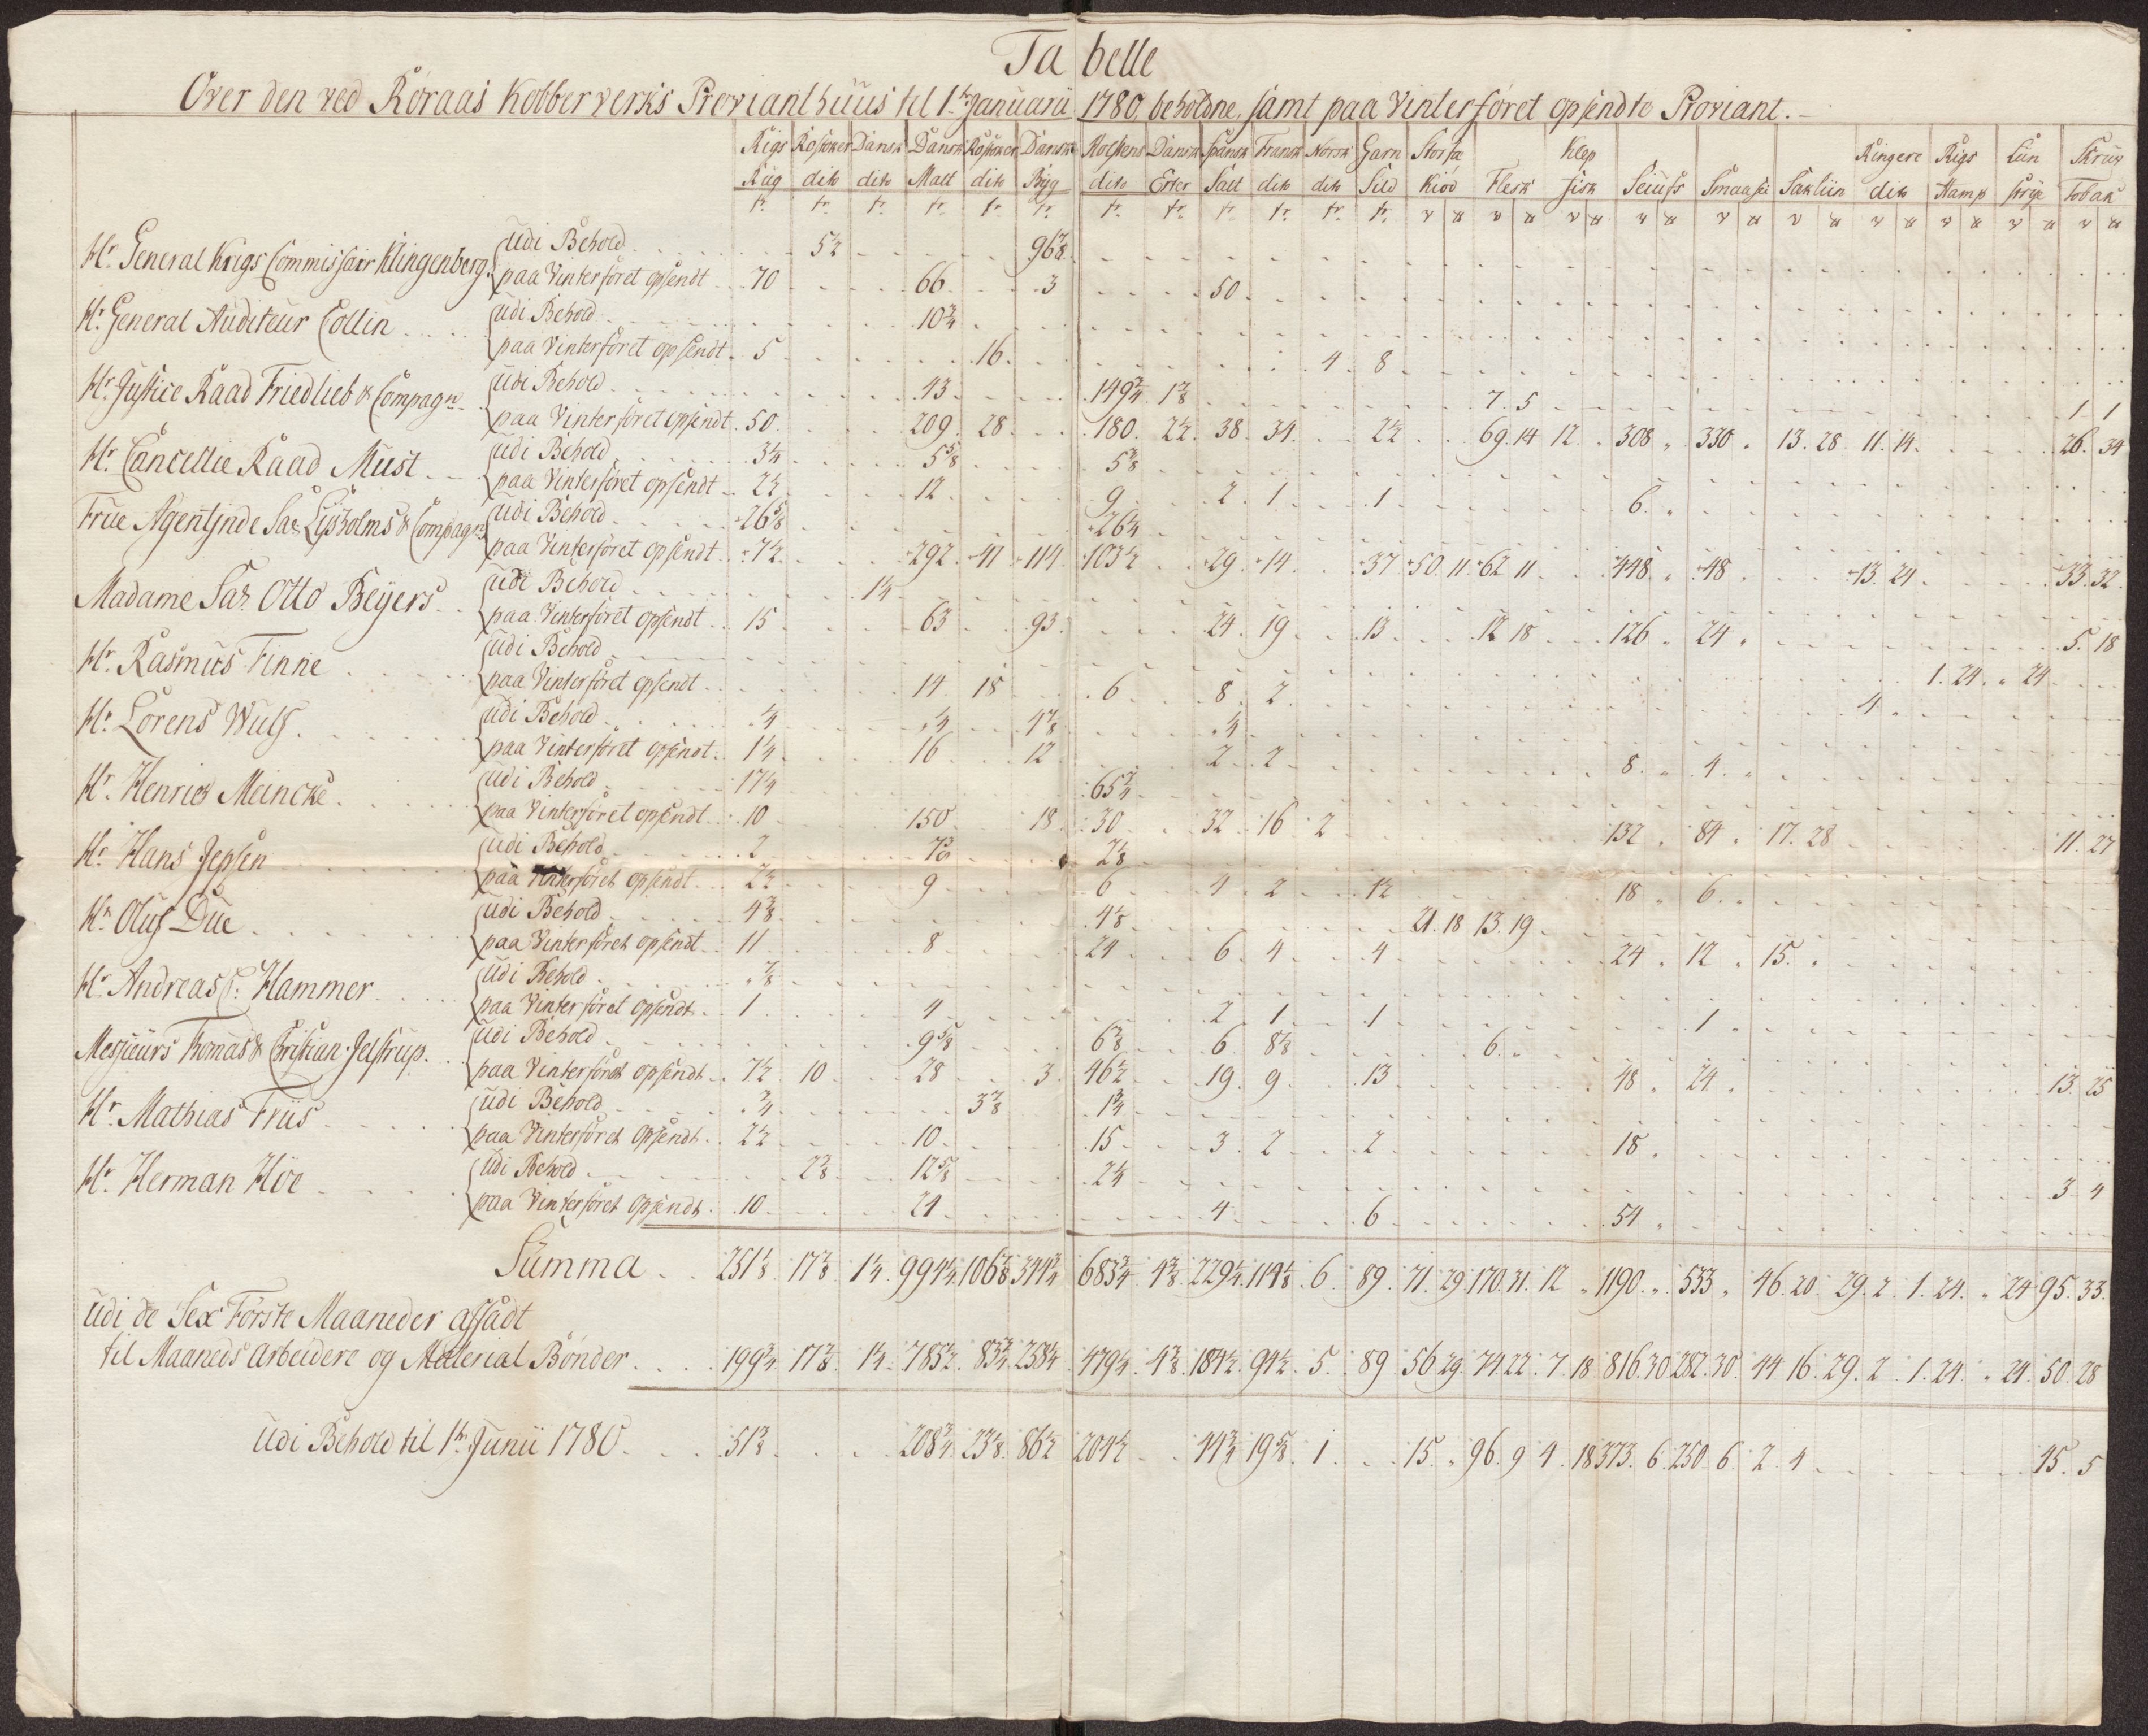 Tabelle
Over den ved Röraas Kobberverks Provianthuus til 1te Januarii 1780 beholdne, samt paa Vinterföret opsendte Proviant.
Rigs Rostoker Dansk Dansk Rostoker Dansk Holstens Dansk Spansk Fransk Norsk Garn Storfæ Klep Ringere Rigs Liin Skruv
Rüg dito dito Malt dito Byg dito Erter Salt dito dito Sild Kiöd Flesk fisk Seiufs Smaasei Saxliin dito Hamp Tobak
tr. tr. tr. tr. tr. tr. tr. tr. tr. tr. tr. tr.
Hr. General Krigs Commissair Klingenberg
udi Behold 5 1/2 96 7/8
paa Vinterföret opsendt 70 66 3 50
Hr. General Auditeur Collin
udi Behold 10 3/4
paa Vinterföret opsendt 5 16 4 8
Hr. Justice Raad Friedlieb & Compagn.
udi Behold 43 149 3/4 1 7/8 7. 5 1 1
paa Vinterföret opsendt 50 209 28 180 2 1/2 38 34 2 1/2 69. 14 12. 308 „ 330 „ 13. 28 11. 14 26. 34
Hr. Cancellie Raad Must
udi Behold 3 1/4 5 5/8 5 3/8
paa Vinterföret opsendt 2 1/2 12 9 2 1 1 6 „
Frue Agentinde Sal. Lysholms & Compagn.
udi Behold 26 5/8 26 1/4
paa Vinterföret opsendt 7 1/2 292 41 114 103 1/2 29 14 37 50. 11 62 11 448 „ 48 13. 24 33. 32
Madame Sal. Otto Beyers
udi Behold 1 1/4
paa Vinterföret opsendt 15 63 93 24 19 13 12 18 126 „ 24 „ 5. 18
Hr. Rasmus Finne
udi Behold
paa Vinterföret opsendt 14 18 6 8 2 1. 24 „ 24
Hr. Lorens Wulf
udi Behold 1/4 1/4 4 7/8 1/4 4
paa Vinterföret opsendt 1 1/4 16 12 2 2 8 „ 4 „
Hr. Henrich Meincke
udi Behold 17 1/4 65 3/4
paa Vinterföret opsendt 10 150 18 30 32 16 2 132 „ 84 „ 17. 28 11. 27
Hr. Hans Jepsen
udi Behold 2 7/8 2 1/8
paa Vinterföret opsendt 2 1/2 9 6 4 2 1 1/2 18 „ 6 „
Hr. Oluf Due
udi Behold 4 3/8 4 1/8 21. 18 13. 19
paa Vinterföret opsendt 11 8 24 6 4 4 24 „ 12 „ 15 „
Hr. Andreas Hammer
udi Behold 7/8
paa Vinterföret opsendt 1 4 2 1 1 1 „
Messieurs Thomas & Christian Jelstrup
udi Behold 9 5/8 6 3/8 6 8 1/8 6 „
paa Vinterföret opsendt 7 1/2 10 28 3 46 1/2 19 9 13 48 „ 24 „ 13. 25
Hr. Mathias Friis
udi Behold 3/4 3 7/8 1 3/4
paa Vinterföret opsendt 2 1/2 10 15 3 2 2 18 „
Hr. Herman Höe
udi Behold 2 3/8 12 5/8 2 1/4 3 4
paa Vinterföret opsendt 10 24 4 6 54 „
Summa 251 1/8 17 7/8 1 1/4 994 1/4 106 7/8 344 3/4 683 3/4 4 3/8 229 1/4 114 1/8 6 89 71. 29 170. 31. 12 „ 1190 „ 533 „ 46. 20 29. 2 1. 24 „ 24 95. 33
Udi de Sex Förste Maaneder afsadt
til Maaneds Arbeidere og Material Bönder 199 3/4 17 7/8 1 1/4 785 1/2 83 3/4 258 1/4 479 1/4 4 3/8 184 1/2 94 1/2 5 89 56 29 74 22 7 18 816. 30 282. 30 44 16 29. 2 1. 24 „ 24 50. 28
Udi Behold til 1te Junii 1780 51 3/8 208 3/4 23 1/8 86 1/2 204 1/2 44 3/4 19 5/8 1 15 „ 96. 9 4 18 373. 6 250 6 2 4 45. 5